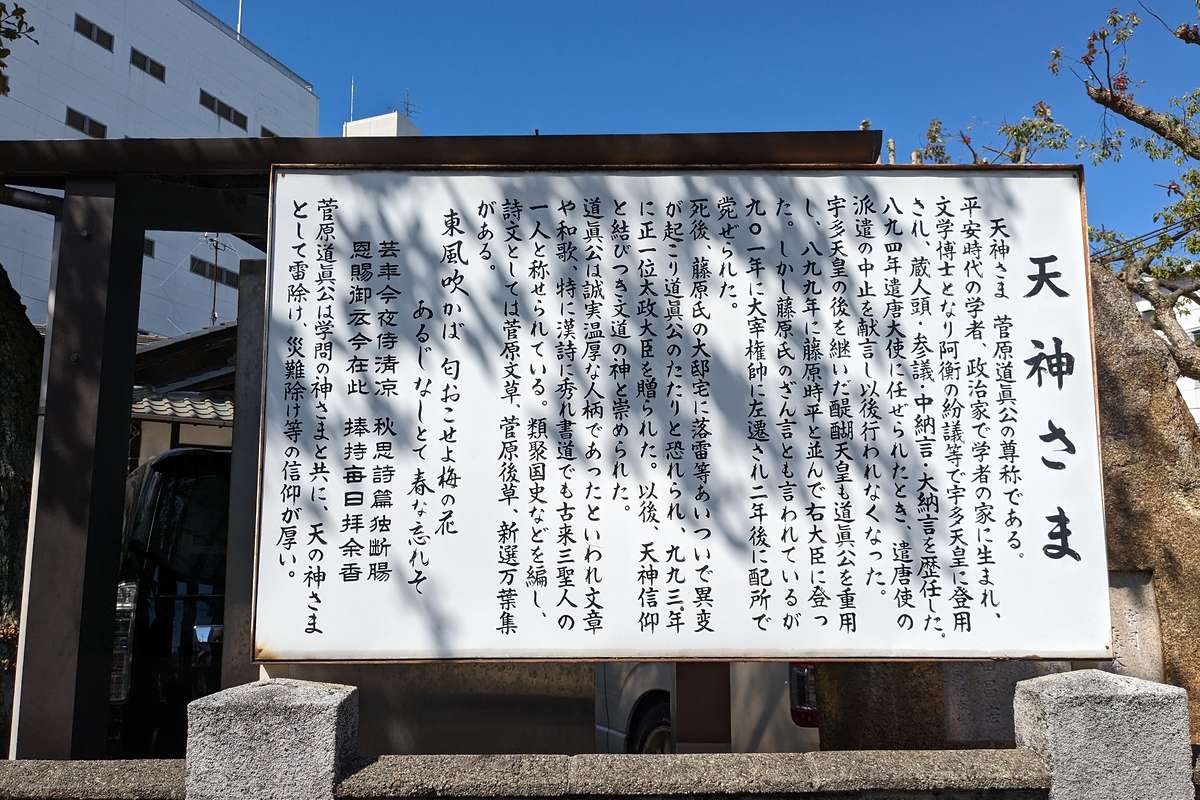 天神さま
天神さま 菅原道眞公の尊称である。
平安時代の学者、政治家で学者の家に生まれ、
文学博士となり阿衡の紛議等で宇多天皇に登用
され、蔵人頭・参議・中納言・大納言を歴任した。
八九四年遣唐大使に任ぜられたとき、遣唐使の
派遣の中止を献言し以後行われなくなった。
宇多天皇の後を継いだ醍醐天皇も道眞公を重用
し、八九九年に藤原時平と並んで右大臣に登っ
た。しかし藤原氏のざん言とも言われているが
九〇一年に大宰権帥に左遷され二年後に配所で
薨ぜられた。
死後、藤原氏の大邸宅に落雷等あいついで異変
が起こり道眞公のたたりと恐れられ、九九三年
に正一位太政大臣を贈られた。以後、天神信仰
と結びつき文道の神と崇められた。
道眞公は誠実温厚な人柄であったといわれ文章
や和歌、特に漢詩に秀れ書道でも古来三聖人の
一人と称せられている。類聚国史などを編し、
詩文としては菅原文草、菅原後草、新選万葉集
がある。
東風吹かば 匂おこせよ梅の花
あるじなしとて 春な忘れそ
去年今夜侍清涼 秋思詩篇独断腸
恩賜御衣今在此 捧持毎日拝余香
菅原道眞公は学問の神さまと共に、天の神さま
として雷除け、災難除け等の信仰が厚い。